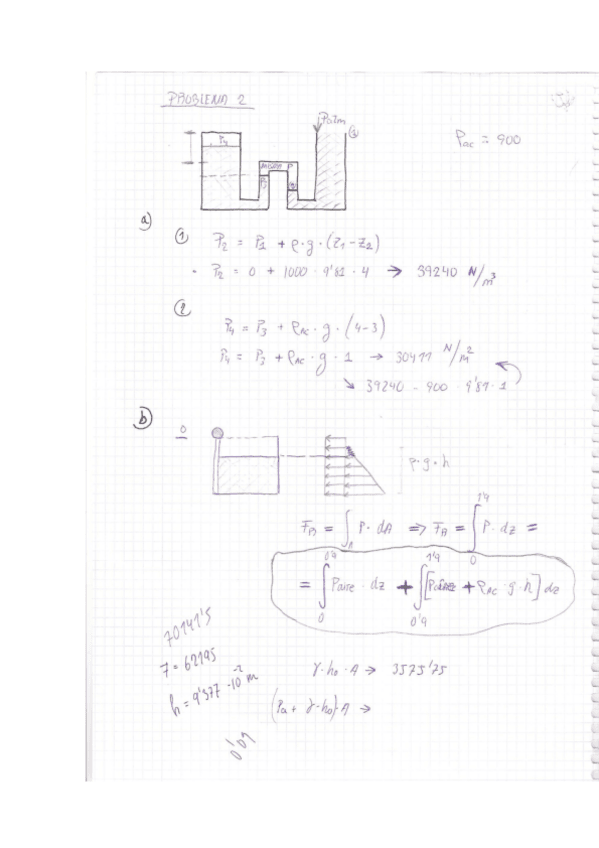 PROBLEMA 2
Patm
P1
MISMA P
ρac = 900
a)
①
P2 = P1 + ρ·g·(z1-z2)
P2 = 0 + 1000 · 9'81 · 4 → 39240 N/m³
②
P4 = P3 + ρAC · g · (4-3)
P4 = P3 + ρAC · g · 1 → 30411 N/m²
↘ 39240 - 900 · 9'81 · 1
b)
0
ρ·g·h
FB = ∫A P·dA ⇒ FB = ∫0 1'4 P·dz =
= ∫0 0'9 Paire · dz + ∫0'9 1'4 [Paire + ρAC · g · h] dz
70141'5
7 = 62195
h = 9'377 · 10⁻² m
γ·h0·A → 3575'75
(Pa + γ·h0)·A →